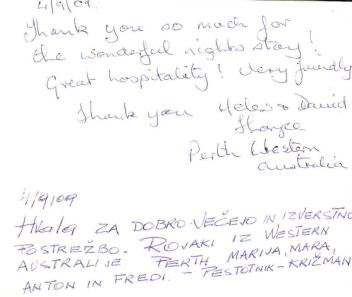 4/9/09.
Thank you so much for
the wonderful nights stay!
Great hospitality! Very friendly
Thank you Helen & David
Perth Western
Australia
4/9/09
Hvala ZA DOBRO VEČEJO IN IZVERSTNO
POSTREŽBO. ROJAKI IZ WESTERN
AUSTRALIJE PERTH MARIJA, MARA,
ANTON IN FREDI. - PESTOTNIK-KRIŽMAN